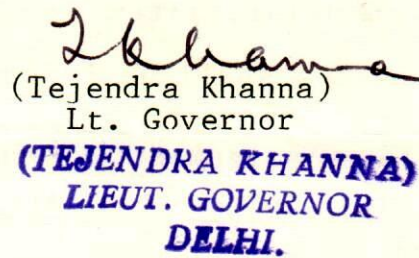 Tkhanna
(Tejendra Khanna)
Lt. Governor
(TEJENDRA KHANNA)
LIEUT. GOVERNOR
DELHI.